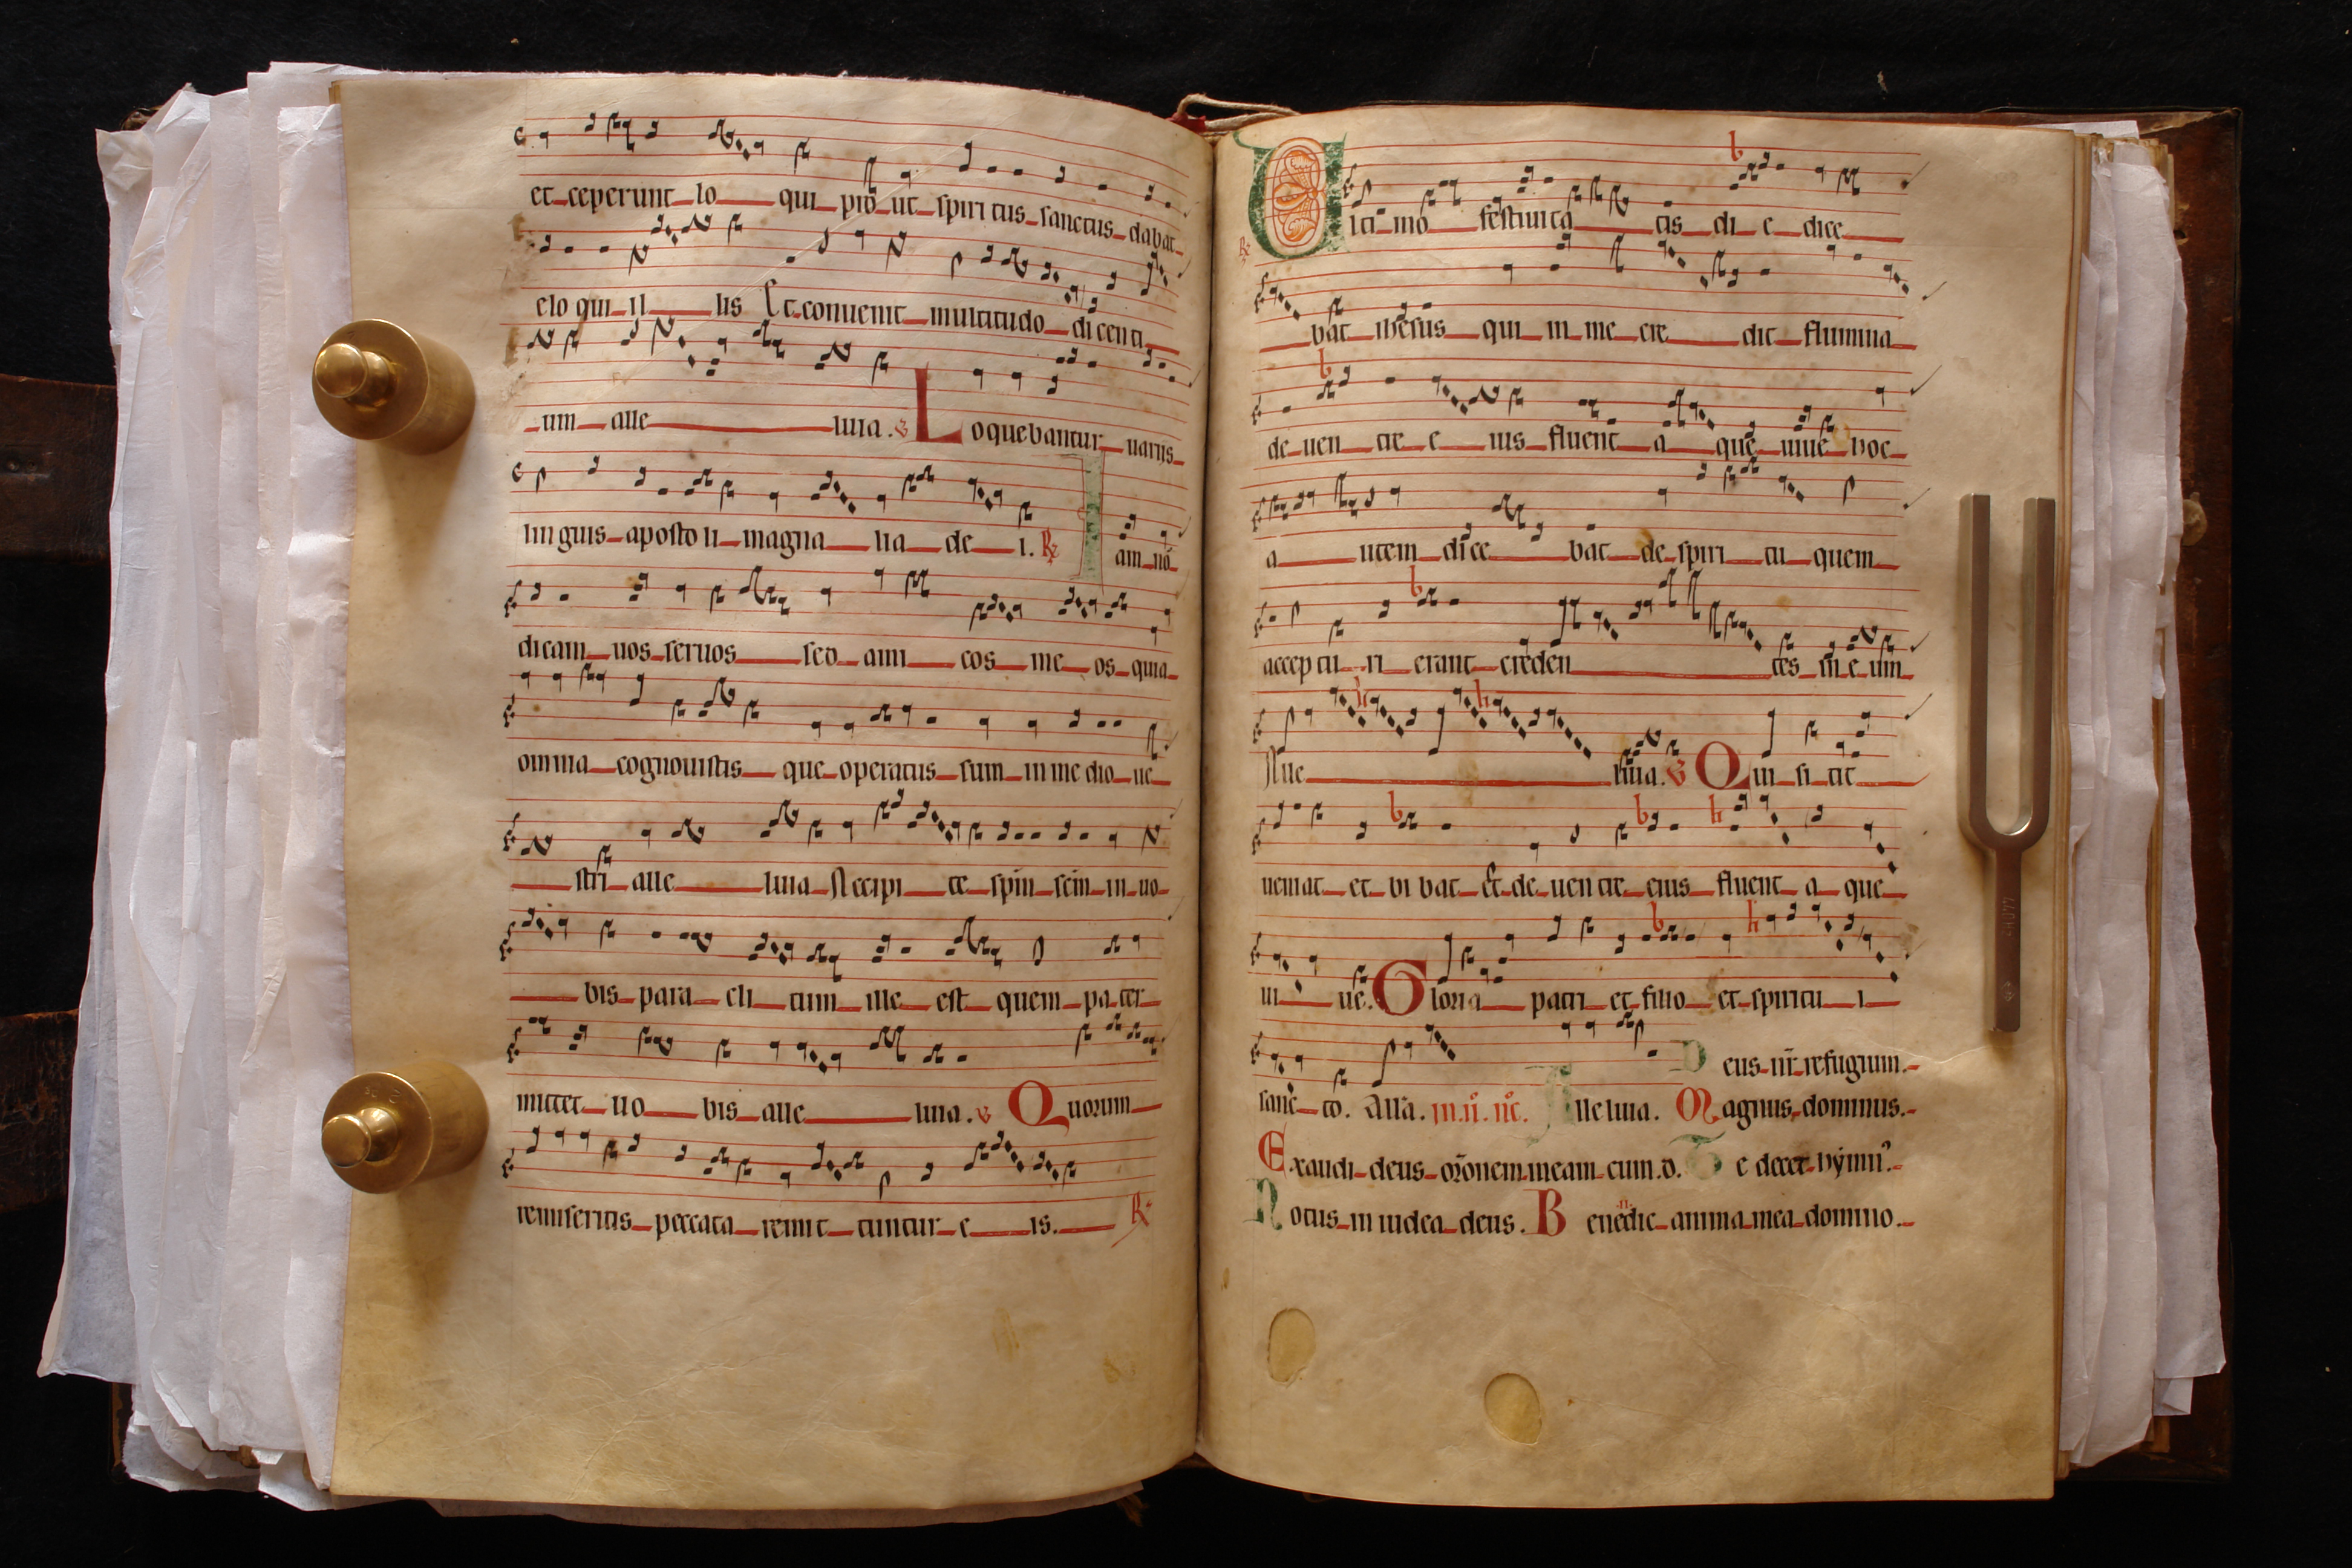 et ceperunt lo qui pro ut spiri tus sanctus dabat
elo qui il lis Et conuenit multitudo dicenti
um alle luia. ℣ Loquebantur uarijs
linguis aposto li magna lia de i. ℟ Iam nō
dicam uos seruos sed ami cos me os quia
omnia cognouistis que operatus sum in me dio ue
stri alle luia Accipi te spm̄ scm̄ in uo
bis para cli tum ille est quem pa ter
mittet uo bis alle luia. ℣ Quorum
remiseritis peccata remit tuntur e is. ℟
℟ Ulti mo festiuita tis di e dice
bat ihesus qui in me cre dit flumina
de uen tre e ius fluent a que uiue hoc
a utem dice bat de spiri tu quem
accep tu ri erant creden tes in e um
Alle luia. ℣ Qui si tit
ueniat et bi bat et de uen tre eius fluent a que
ui ue. Gloria patri et filio et spiritu i
Deus nr̄ refugium.
sanc to. Alla. in.ii. nc̄. Alleluia. Magnus dominus.
Exaudi deus or̄onem meam cum d. Te decet hymn᾿.
Notus in iudea deus. Benedic anima mea domino.